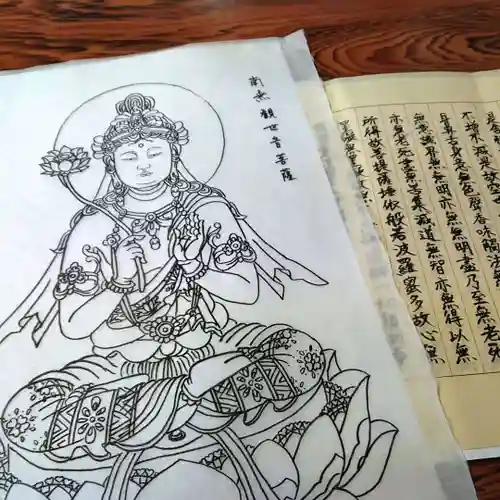 南無観世音菩薩
不増不減是故空
耳鼻舌身意無色声香味触法
無意識界無無明亦無無明盡乃至無老死
亦無老死盡無苦集滅道無智亦無得以無
所得故菩提薩埵依般若波羅蜜多故心無
罣礙無罣